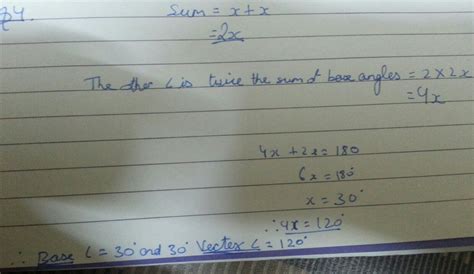 Sum = x + x
= 2x
The other ∠ is twice the sum of base angles = 2 × 2x
= 4x
4x + 2x = 180
6x = 180°
x = 30°
∴ 4x = 120°
∴ Base ∠ = 30° and 30° Vertex ∠ = 120°